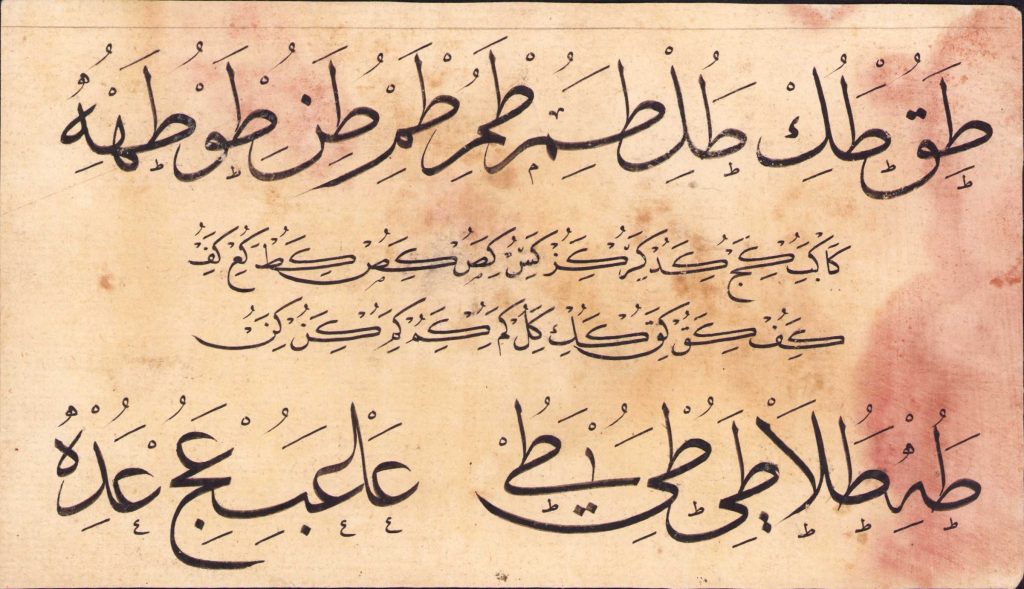 طق طك طل طسم طم طم طن طو طهه
كا كب كج كد كر كز كس كص كص كط كع كف
كف كق كق كك كل كم كم كم كن كن
طه طلا طى طى عا عب عج عد